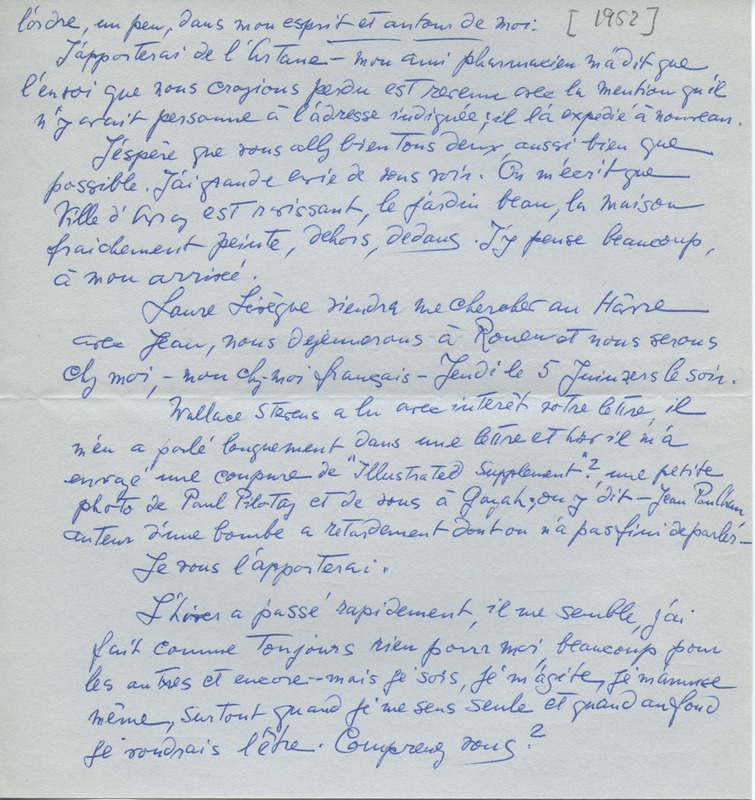 l'ordre, un peu, dans mon esprit et autour de moi. [1952]
J'apporterai de l'Artane – mon ami pharmacien m'a dit que
l'envoi que nous croyions perdu est revenu avec la mention qu'il
n'y avait personne à l'adresse indiquée ; il l'a expedié à nouveau.
J'éspère que vous allez bien tous deux, aussi bien que
possible. J'ai grande envie de vous voir. On m'écrit que
Ville d'Avray est ravissant, le jardin beau, la maison
fraichement peinte, dehors, dedans. J'y pense beaucoup,
à mon arrivée.
Laure Lévèque viendra me chercher au Hâvre
avec Jean, nous dejeunerons à Rouen et nous serons
chez moi, – mon chez-moi français – Jeudi le 5 Juin vers le soir.
Wallace Stevens a lu avec interêt votre lettre, il
m'en a parlé longuement dans une lettre et hier il m'a
envoyé une coupure de "Illustrated Supplement"? une petite
photo de Paul et de vous à ; on y dit – Jean Paulhan
auteur d'une bombe a retardement dont on n'a pas fini de parler –
Je vous l'apporterai.
L'hiver a passé rapidement, il me semble, j'ai
fait comme toujours rien pour moi beaucoup pour
les autres et encore -- mais je sors, je m'agite, je m'amuse
même, surtout quand je me sens seule et quand au fond
je voudrais l'être. Comprenez vous?